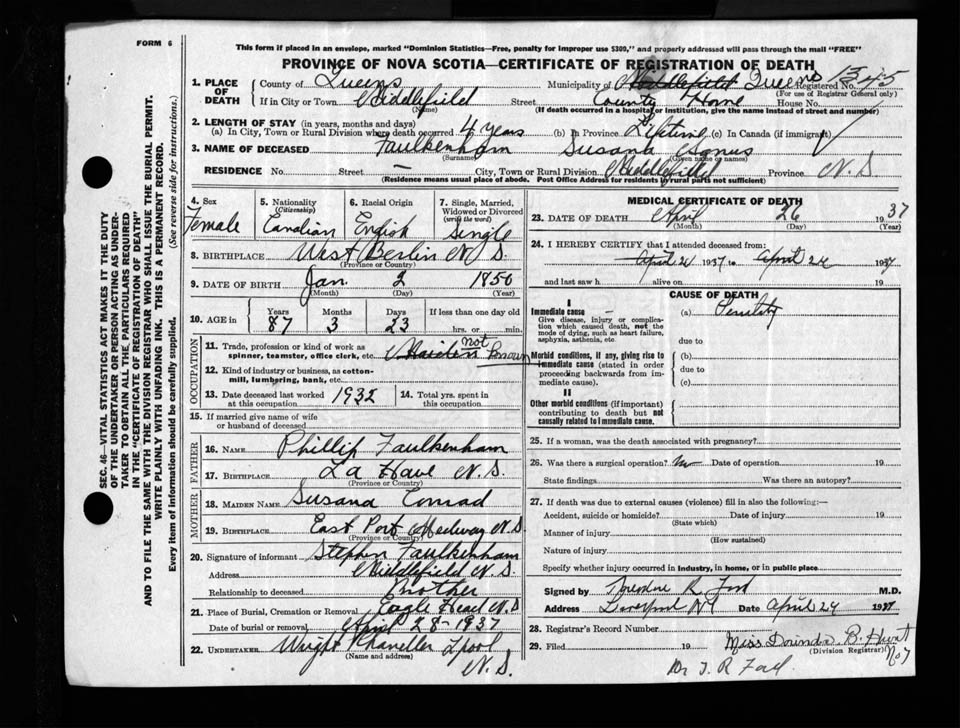 FORM 6
This form if placed in an envelope, marked "Dominion Statistics—Free, penalty for improper use $300," and properly addressed will pass through the mail "FREE"
PROVINCE OF NOVA SCOTIA—CERTIFICATE OF REGISTRATION OF DEATH
1. PLACE OF DEATH County of Queens Municipality of Middlefield Queens Registered No. 1345
(For use of Registrar General only)
If in City or Town Middlefield Street County Home House No.
(Name) (If death occurred in a hospital or institution, give the name instead of street and number)
2. LENGTH OF STAY (in years, months and days)
(a) In City, Town or Rural Division where death occurred 4 years (b) In Province Lifetime (c) In Canada (if immigrant)
3. NAME OF DECEASED Faulkenham Susana
(Surname) (Given name or names)
RESIDENCE No. Street — City, Town or Rural Division Middlefield Province N.S.
(Residence means usual place of abode. Post Office Address for residents in rural parts not sufficient)
4. Sex Female
5. Nationality (Citizenship) Canadian
6. Racial Origin English
7. Single, Married, Widowed or Divorced (write the word) Single
8. BIRTHPLACE West Berlin N.S.
(Province or Country)
9. DATE OF BIRTH Jan. 2 1850
(Month) (Day) (Year)
10. AGE in Years 87 Months 3 Days 23 If less than one day old
hrs. or min.
OCCUPATION
11. Trade, profession or kind of work as spinner, teamster, office clerk, etc. Maiden not known
12. Kind of industry or business, as cotton-mill, lumbering, bank, etc.
13. Date deceased last worked at this occupation 1932
14. Total yrs. spent in this occupation
15. If married give name of wife or husband of deceased
FATHER
16. NAME Phillip Faulkenham
17. BIRTHPLACE La Have N.S.
(Province or Country)
MOTHER
18. MAIDEN NAME Susana Conrad
19. BIRTHPLACE East Port Medway N.S.
(Province or Country)
20. Signature of informant Stephen Faulkenham
Address Middlefield N.S.
Relationship to deceased Brother
21. Place of Burial, Cremation or Removal Eagle Head N.S
Date of burial or removal April 28-1937
22. UNDERTAKER Wright Chandler L'pool
(Name and address) N.S.
MEDICAL CERTIFICATE OF DEATH
23. DATE OF DEATH April 26 1937
(Month) (Day) (Year)
24. I HEREBY CERTIFY that I attended deceased from:
April 1937 to April 1937
and last saw h alive on 19
CAUSE OF DEATH
I
Immediate cause —
Give disease, injury or complication which caused death, not the mode of dying, such as heart failure, asphyxia, asthenia, etc.
(a) Senility
due to
Morbid conditions, if any, giving rise to immediate cause (stated in order proceeding backwards from immediate cause).
(b)
due to
(c)
II
Other morbid conditions (if important) contributing to death but not causally related to immediate cause.
25. If a woman, was the death associated with pregnancy?
26. Was there a surgical operation? no Date of operation 19
State findings Was there an autopsy?
27. If death was due to external causes (violence) fill in also the following:—
Accident, suicide or homicide? Date of injury 19
(State which)
Manner of injury
(How sustained)
Nature of injury
Specify whether injury occurred in industry, in home, or in public place
Signed by Theodore R Ford M.D.
Address Liverpool NS Date April 1937
28. Registrar's Record Number
29. Filed 19 Miss Dorinda B. Hunt
(Division Registrar) No 7
Dr T. R Ford
SEC. 46—VITAL STATISTICS ACT MAKES IT THE DUTY
OF THE UNDERTAKER OR PERSON ACTING AS UNDER-
TAKER TO OBTAIN ALL THE PARTICULARS REQUIRED
IN THE "CERTIFICATE OF REGISTRATION OF DEATH"
AND TO FILE THE SAME WITH THE DIVISION REGISTRAR WHO SHALL ISSUE THE BURIAL PERMIT.
WRITE PLAINLY WITH UNFADING INK. THIS IS A PERMANENT RECORD.
Every item of information should be carefully supplied. (See reverse side for instructions.)